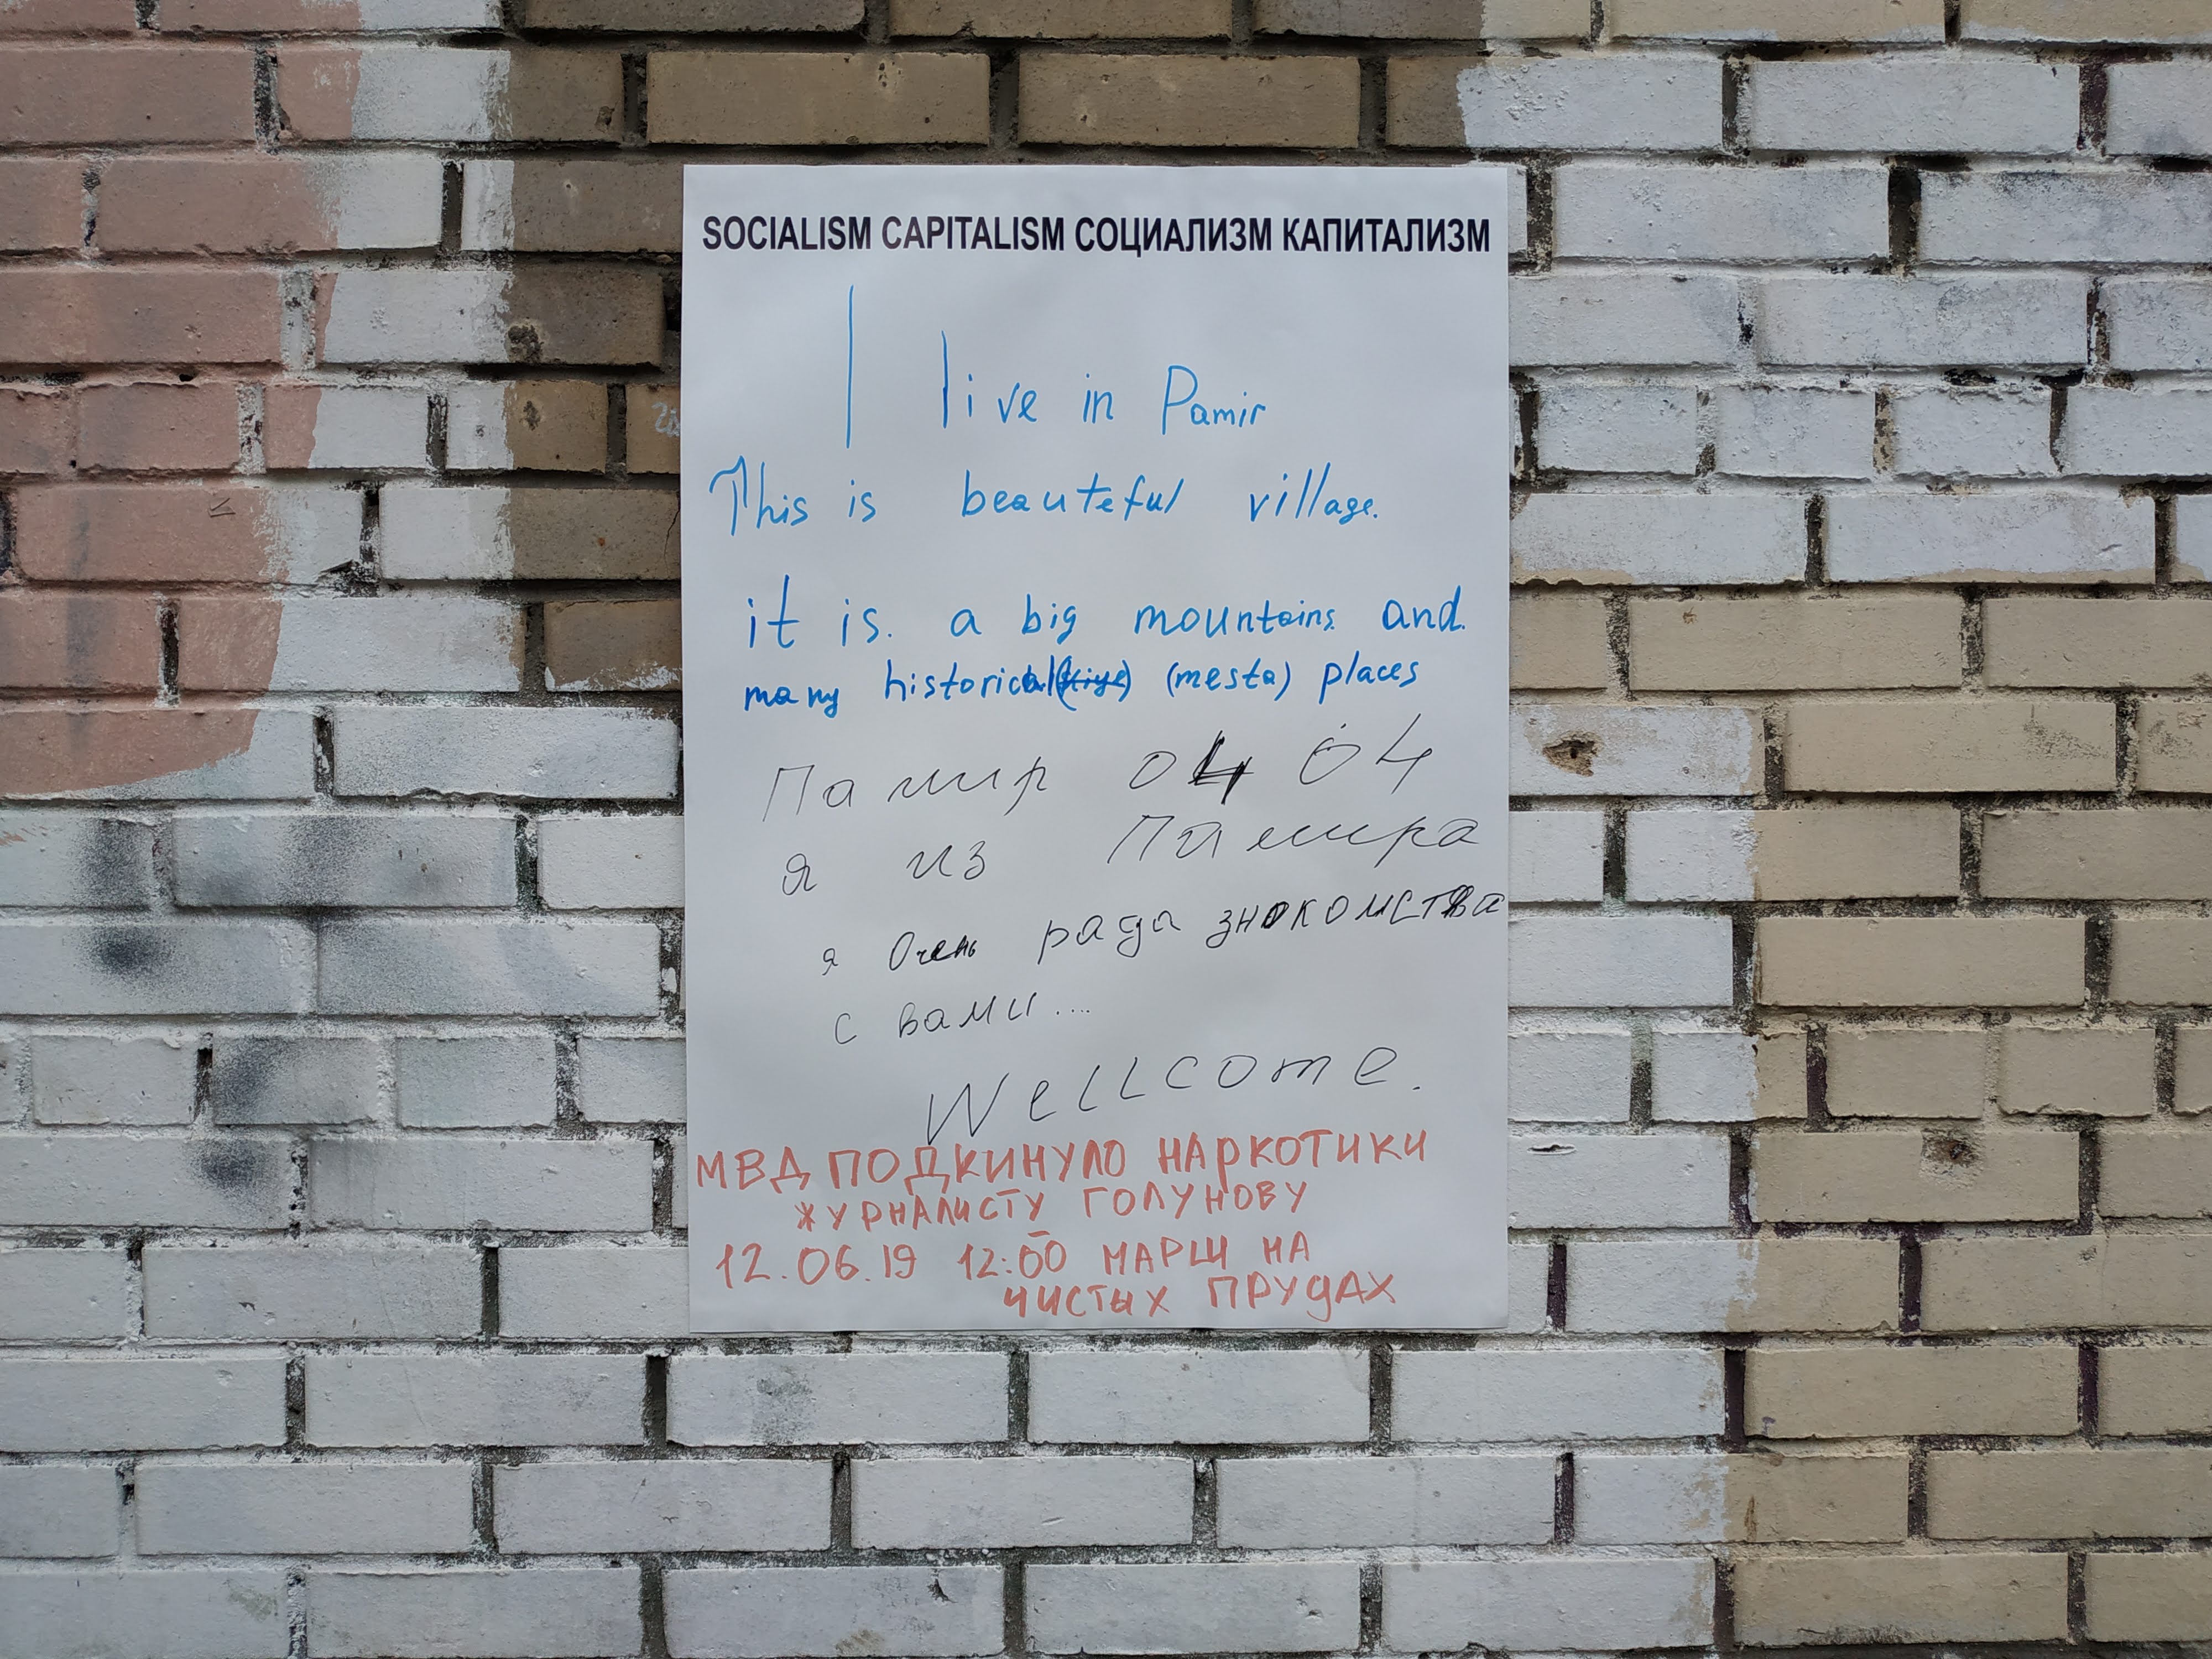 SOCIALISM CAPITALISM СОЦИАЛИЗМ КАПИТАЛИЗМ
I live in Pamir
This is beauteful village.
it is. a big mountains. and.
many historical (mesta) places
Памир 04 04
я из Памира
я Очень рада знокомства
с вами...
Wellcome.
МВД ПОДКИНУЛО НАРКОТИКИ
ЖУРНАЛИСТУ ГОЛУНОВУ
12.06.19 12:00 МАРШ НА
ЧИСТЫХ ПРУДАХ